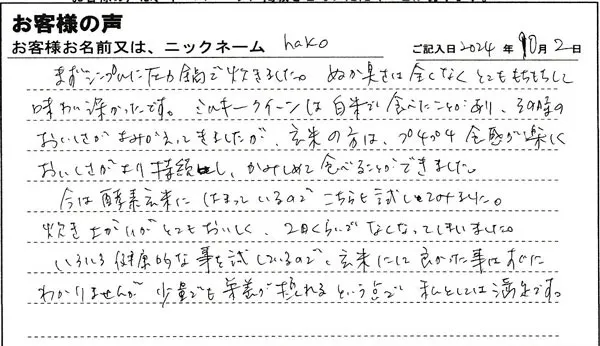 お客様の声
お客様お名前又は、ニックネーム hako ご記入日2024年10月2日
まずシンプルに圧力鍋で炊きました。ぬか臭さは全くなくとてももちもちして
味わい深かったです。ミルキークイーンは白米で食べたことがあり、その時の
おいしさがよみがえってきましたが、玄米の方は、プチプチ食感が楽しく
おいしさがより持続し、かみしめて食べることができました。
今は酵素玄米にはまっているのでこちらも試してみました。
炊き上がりがとてもおいしく、2日くらいでなくなってしまいました。
いろいろ健康的な事を試しているので、玄米にして良かった事はすぐに
わかりませんが少量でも栄養が摂れるという点で私としては満足です。